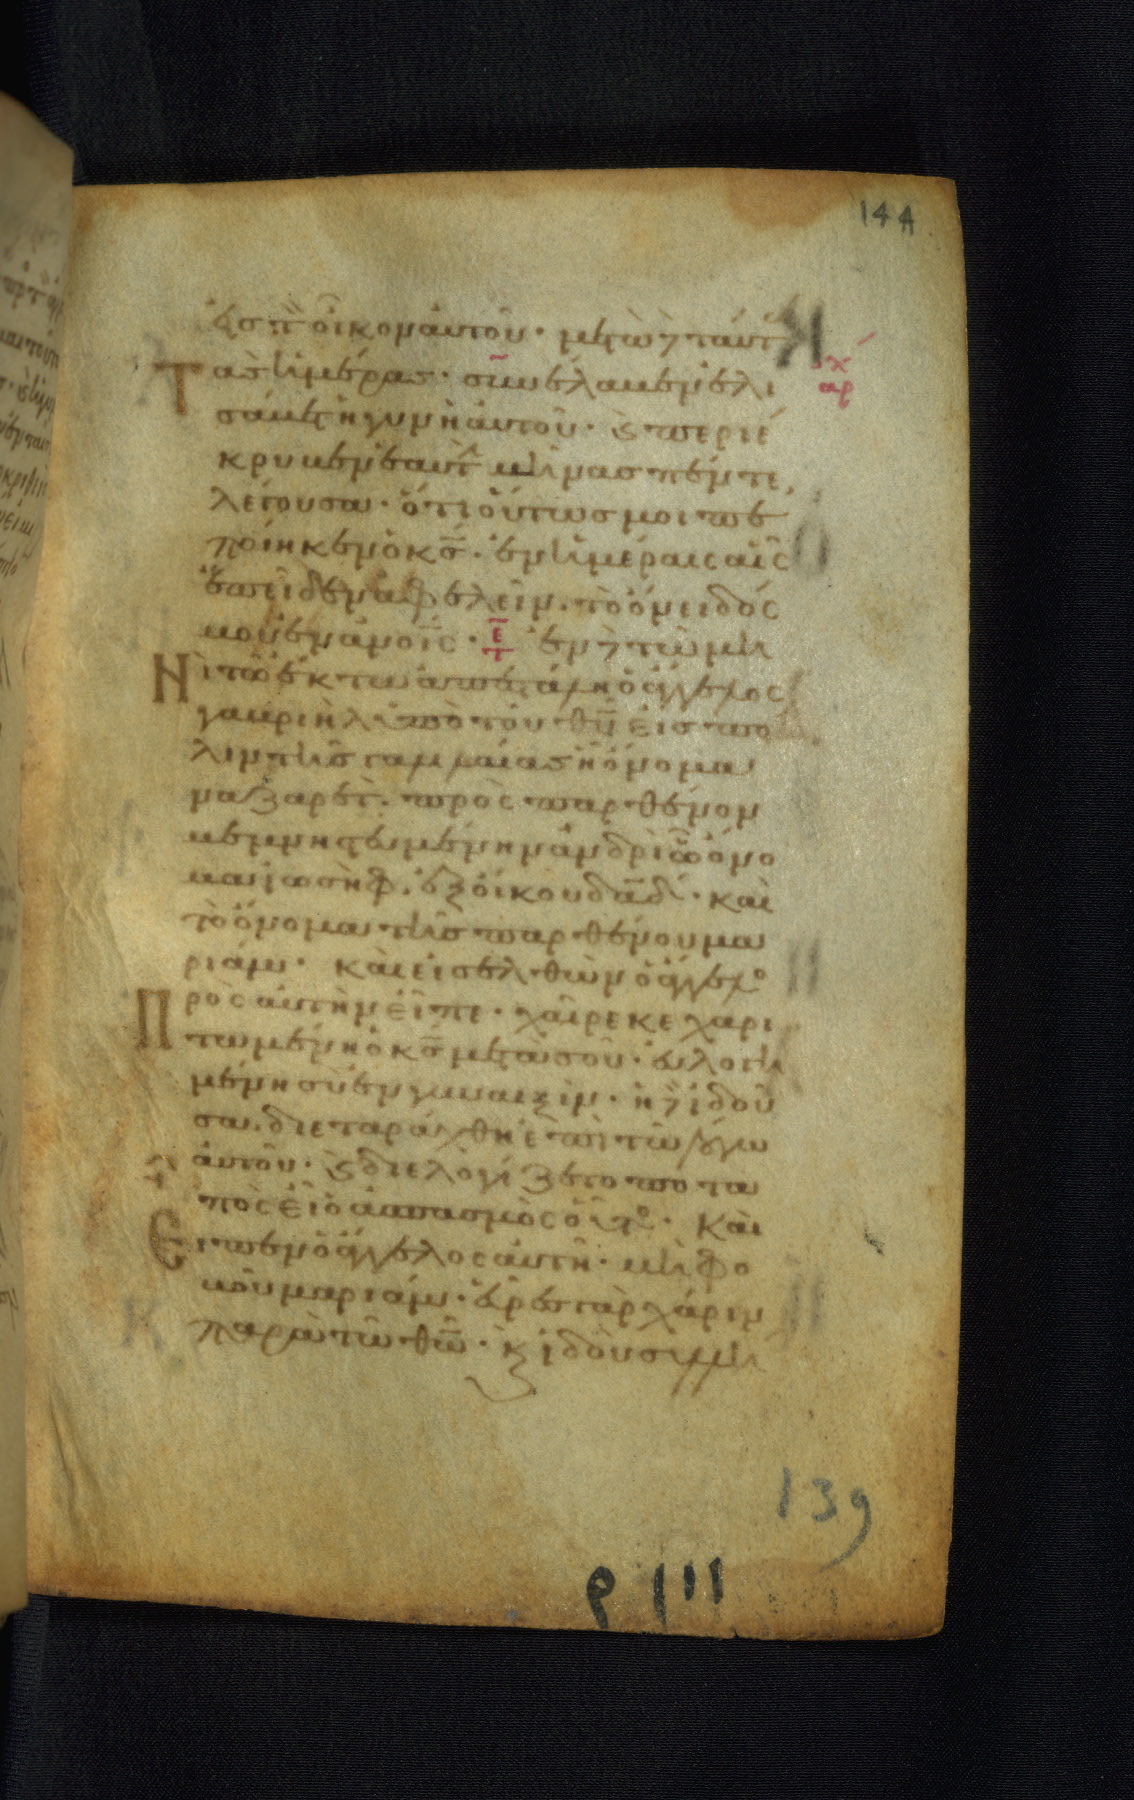 144
εἰς τ̀ οἶκον αὐτοῦ· μετὰ δ̀ ταύτ
χ́
αρ
Τὰς ἡμέρας· συνέλαβεν ἐλι
σάβετ ἡ γυνὴ αὐτοῦ· ϗ περιέ
κρυβεν ἑαυτ̀ μῆνας πέντε,
λέγουσα· ὅτι οὕτως μοι πε
ποίηκεν ὁ κ̅ς̅· ἐν ἡμέραις αἷς
ἐπεῖδεν ἀφελεῖν τὸ ὄνειδός
μου ἐν ἀνοις· ε̅
τ ἐν δ̀ τῶ μη
Νὶ τῶ ἕκτω ἀπεστάλη ὁ ἄγγελος
γαβριὴλ ὑπὸ τοῦ θ̅υ̅ εἰς πό
λιν τῆς γαλιλαίας ἧ ὄνομα
ναζαρέτ· πρὸς παρθένον
μεμνηστευμένην ἀνδρὶ ὧ ὄνο
μα ἰωσὴφ· ἐξ οἴκου δα̅δ̅· καὶ
τὸ ὄνομα τῆς παρθένου μα
ριάμ· καὶ εἰσελθὼν ὁ ἄγγελο
Πρὸς αὐτὴν εἶπε· χαῖρε κεχαρι
τωμένη ὁ κ̅ς̅ μετὰ σοῦ· εὐλογη
μένη σὺ ἐν γυναιξίν· ἡ δ̀ ἰδοῦ
σα διεταράχθη ἐπὶ τῶ λόγω
αὐτοῦ· ϗ διελογίζετο ποτα
πὸς εἴη ὁ ἀσπασμὸς οὗτο· Καὶ
Εἶπεν ὁ ἄγγελος αὐτῆ· μὴ φο
βοῦ μαριάμ· εὗρες γὰρ χάριν
παρὰ τῶ θ̅ω̅· ϗ ἰδοὺ συλλη
139